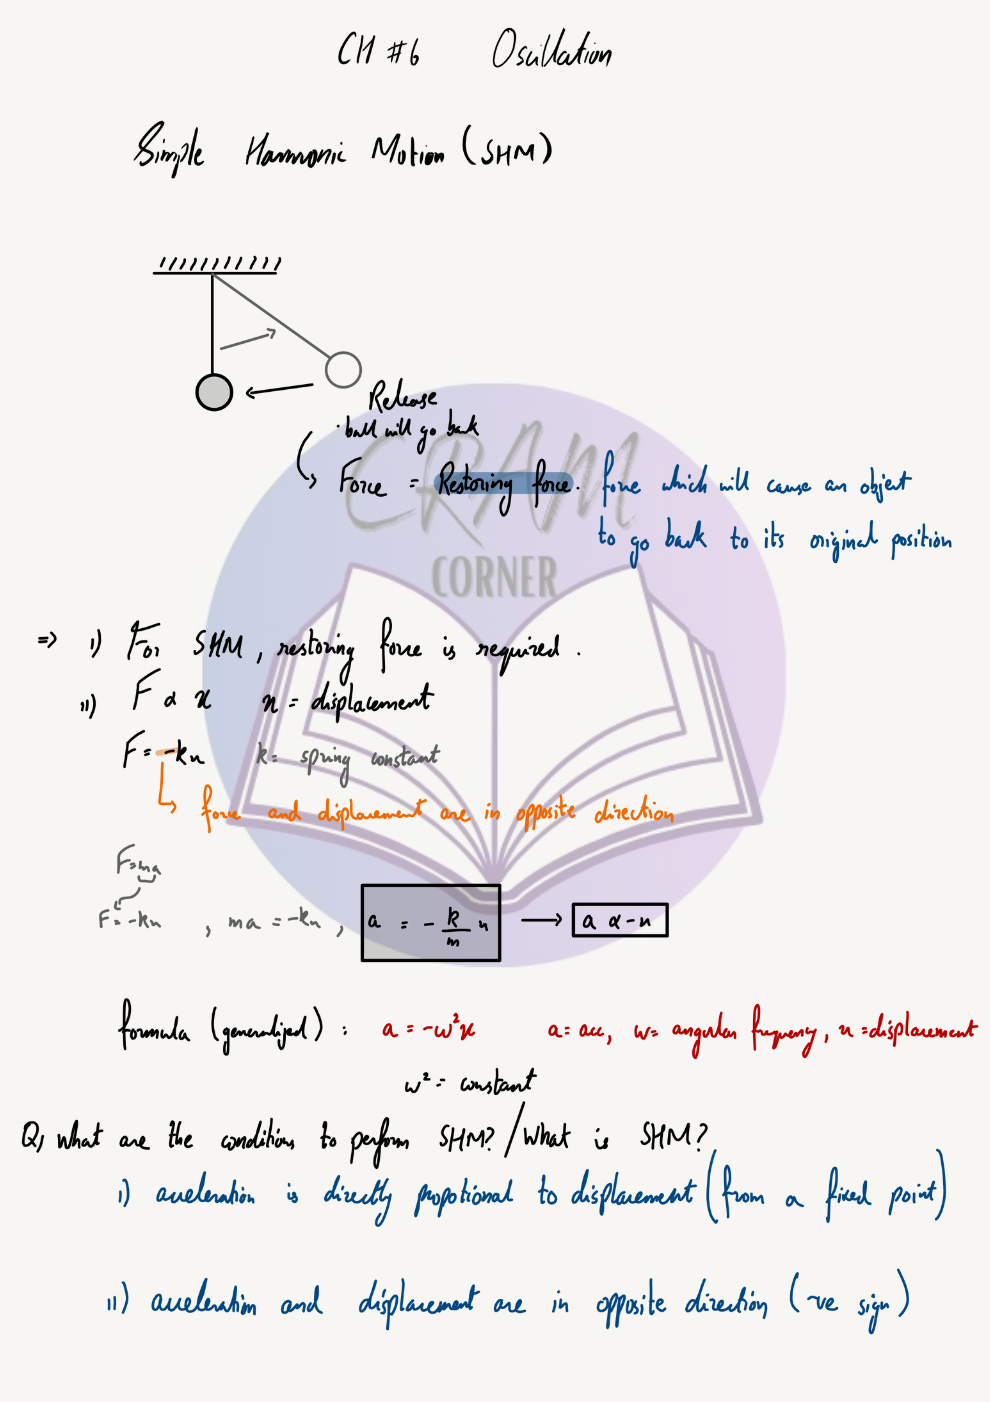 CH #6 Oscillation
Simple Harmonic Motion (SHM)
Release
· ball will go back
Force = Restoring force. force which will cause an object
to go back to its original position
CRAM
CORNER
=> i) For SHM, restoring force is required.
ii) F α x x = displacement
F = -kx k = spring constant
force and displacement are in opposite direction
F=ma
F = -kx , ma = -kx , a = - k/m x → a α -x
formula (generalized) : a = -ω²x a = acc, ω = angular frequency, x = displacement
ω² = constant
Q, What are the conditions to perform SHM? / What is SHM?
i) acceleration is directly propotional to displacement (from a fixed point)
ii) acceleration and displacement are in opposite direction (-ve sign)